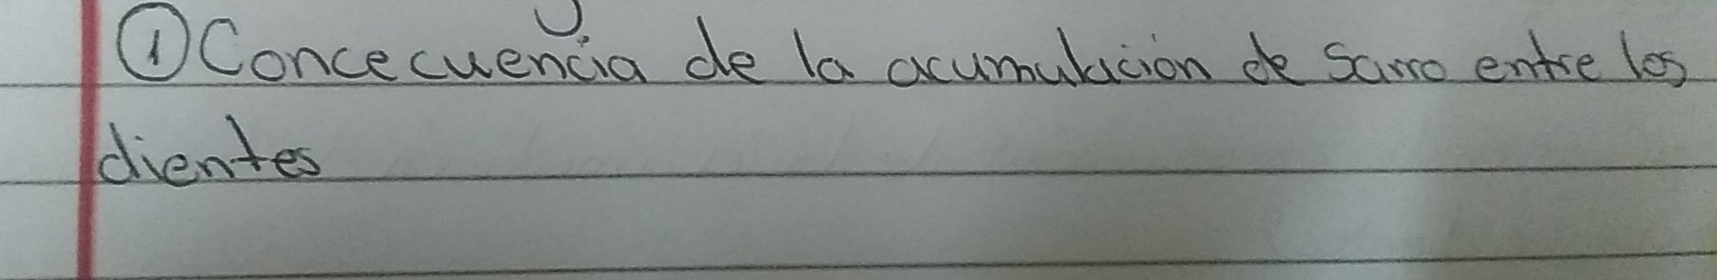 ① Concecuencia de la acumulación de sarro entre los
dientes